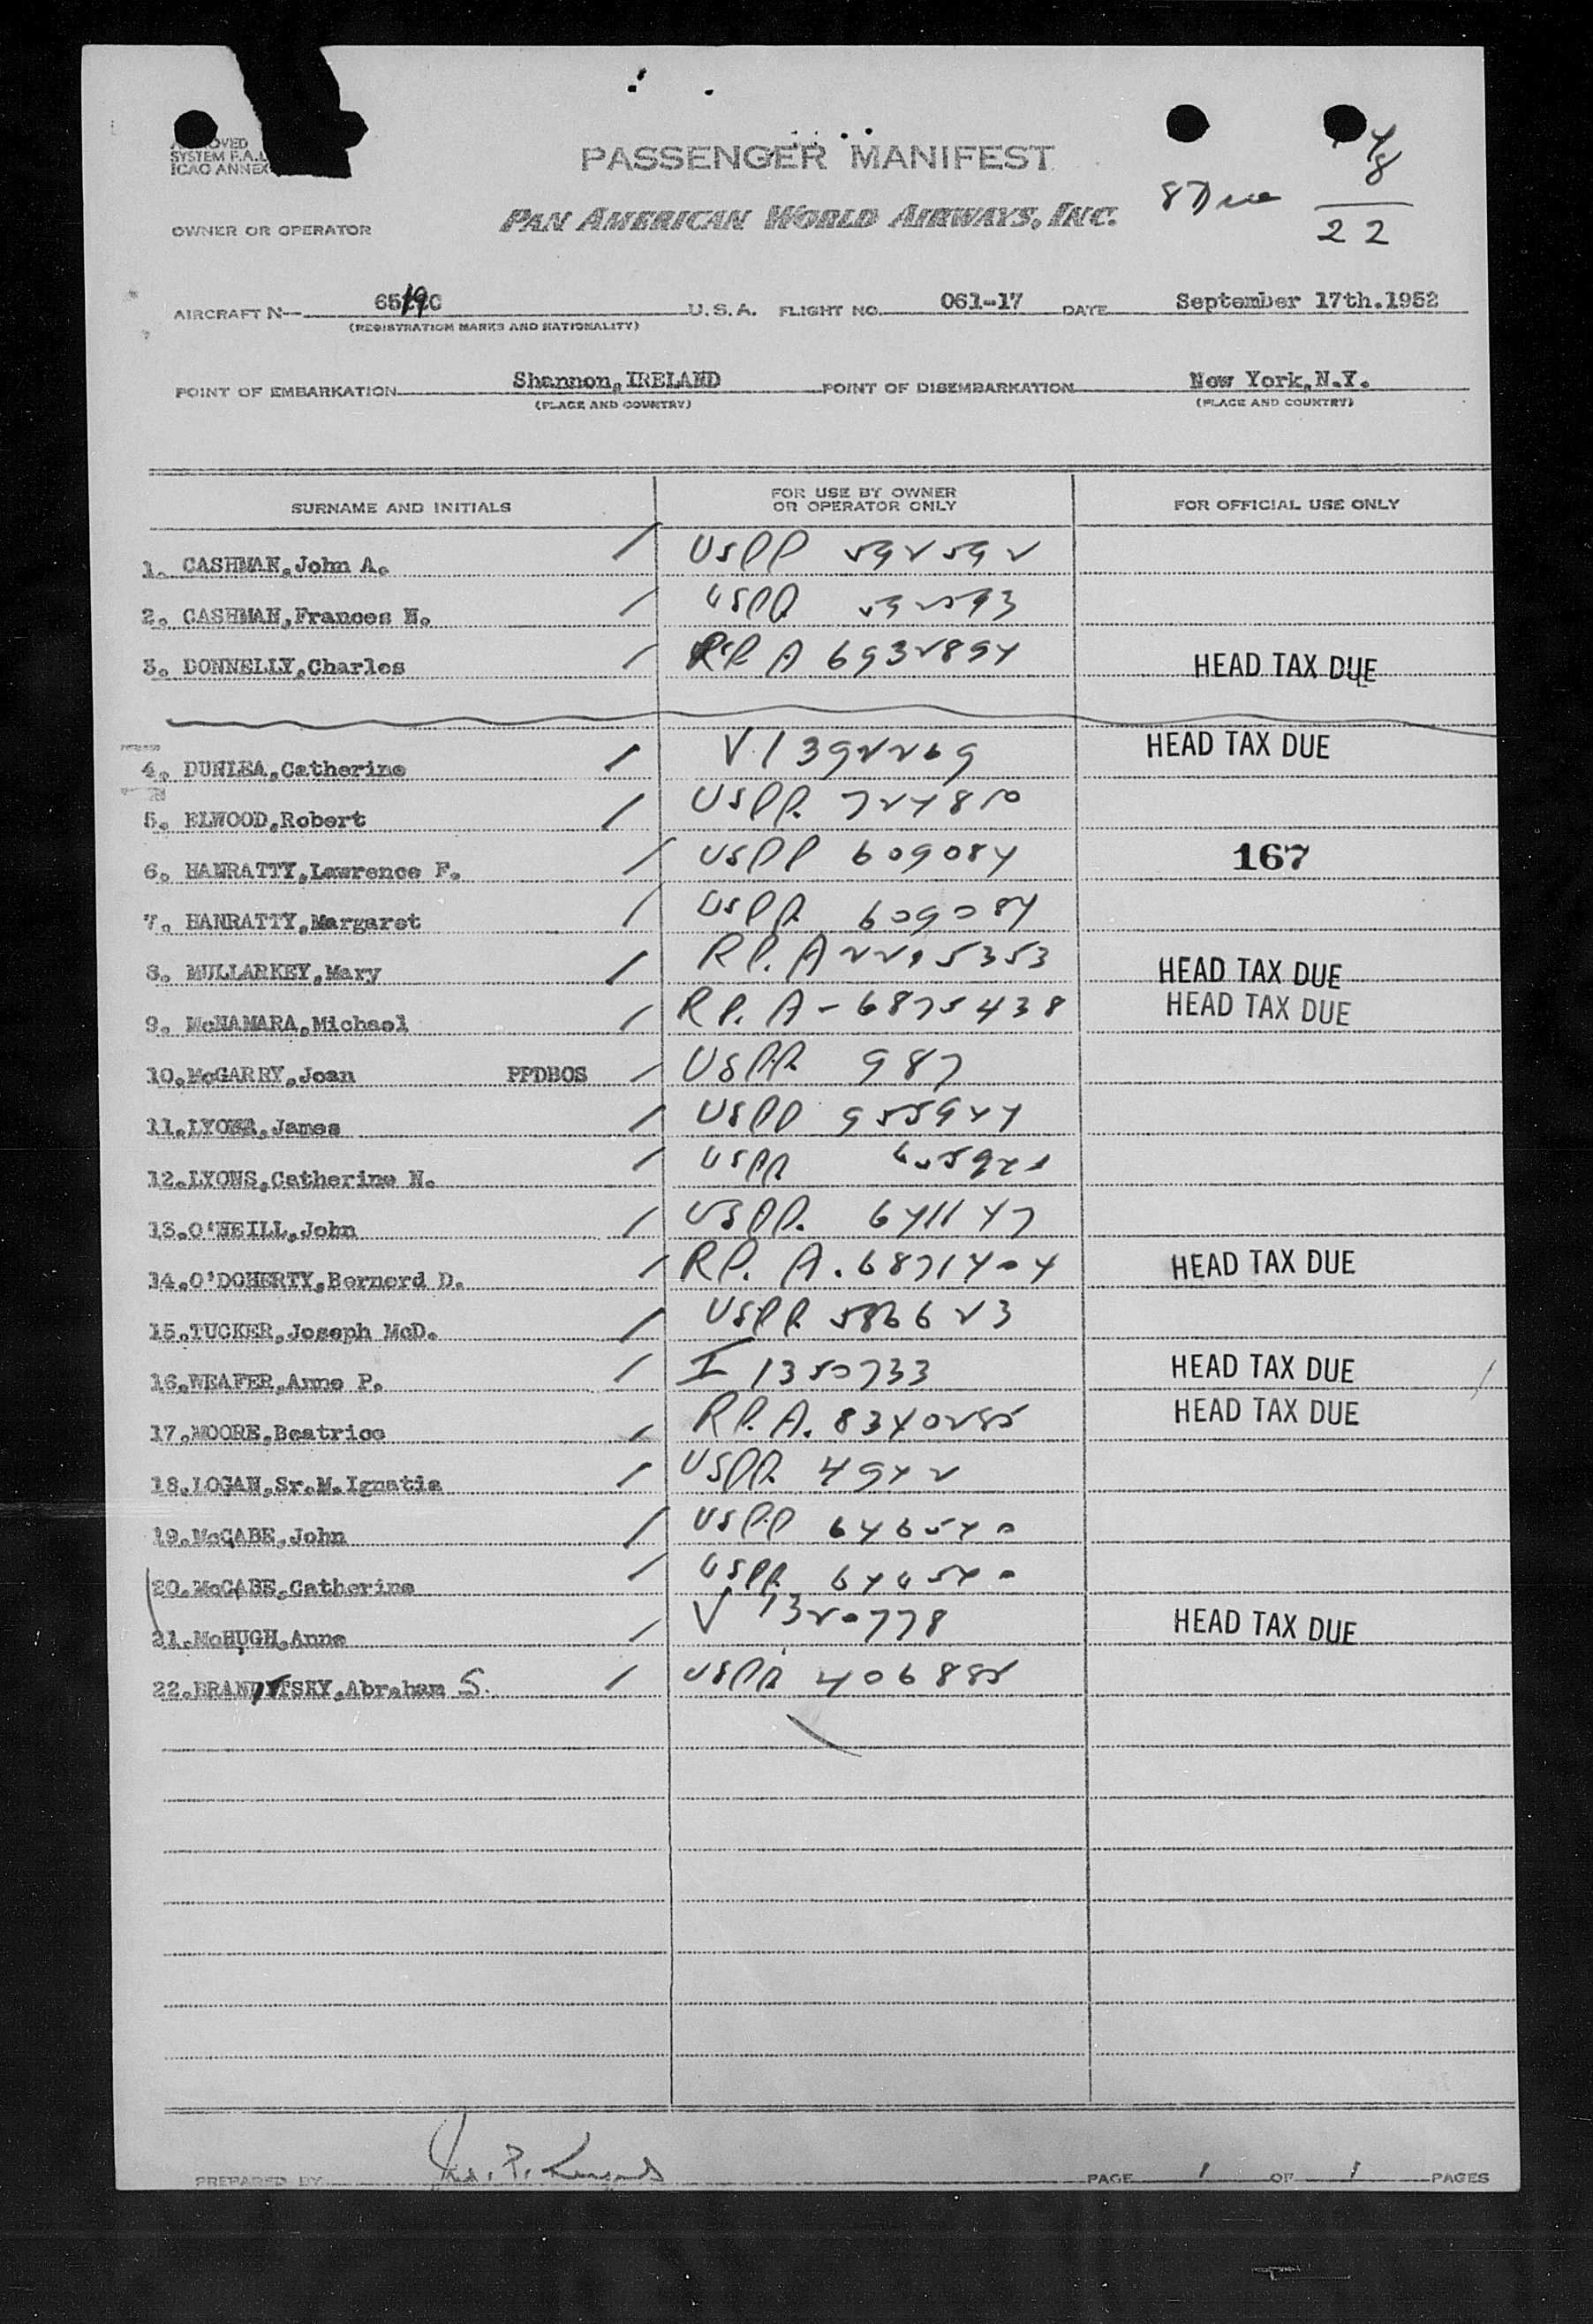 SYSTEM F.A.L
ICAO ANNEX
PASSENGER MANIFEST
8 Due
22
OWNER OR OPERATOR
PAN AMERICAN WORLD AIRWAYS, INC.
AIRCRAFT N— U.S.A. FLIGHT NO. 061-17 DATE September 17th.1952
(REGISTRATION MARKS AND NATIONALITY)
POINT OF EMBARKATION Shannon, IRELAND POINT OF DISEMBARKATION New York, N.Y.
(PLACE AND COUNTRY) (PLACE AND COUNTRY)
SURNAME AND INITIALS FOR USE BY OWNER OR OPERATOR ONLY FOR OFFICIAL USE ONLY
1. CASHMAN, John A. / USPP 592592
2. CASHMAN, Frances N. / USPP 592593
3. DONNELLY, Charles / RP. A 6932894 HEAD TAX DUE
4. DUNLEA, Catherine / V.1392269 HEAD TAX DUE
5. ELWOOD, Robert / USPP.
6. HANRATTY, Lawrence F. / USPP 609084 167
7. HANRATTY, Margaret / USPP. 609084
8. MULLARKEY, Mary / RP. A HEAD TAX DUE
9. McNAMARA, Michael / RP. A-6875438 HEAD TAX DUE
10. McGARRY, Joan PPDBOS / USPP. 987
11. LYONS, James / USPP
12. LYONS, Catherine N. / USPP
13. O'NEILL, John / USPP. 641147
14. O'DOHERTY, Bernard D. / RP. A. 6871404 HEAD TAX DUE
15. TUCKER, Joseph McD. / USPP.
16. WEAFER, Anne P. / I 1350733 HEAD TAX DUE
17. MOORE, Beatrice / RP. A. 8340285 HEAD TAX DUE
18. LOGAN, Sr. M. Ignatia / USPP. 4942
19. McCABE, John / USPP 646540
20. McCABE, Catherine / USPP. 646540
21. McHUGH, Anne / V 1320778 HEAD TAX DUE
22. Abraham S. / USPP 406885
PREPARED BY PAGE 1 OF 1 PAGES